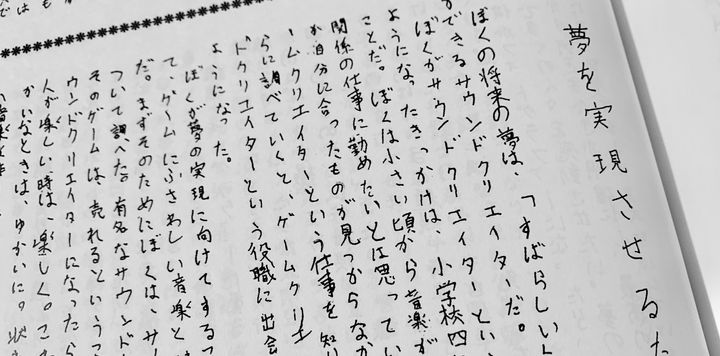 夢を実現させるた
ぼくの将来の夢は、「すばらしい
ができるサウンドクリエイターだ。
ぼくがサウンドクリエイターとい
ようになったきっかけは、小学校四
ことだ。ぼくは小さい頃から音楽が
関係の仕事に勤めたいとは思ってい
か自分に合ったものが見つからなか
ームクリエイターという仕事を知り
らに調べていくと、ゲームクリエ
ドクリエイターという役職に出会
ようになった。
ぼくが夢の実現に向けてするつ
て、ゲームにふさわしい音楽と
だ。まずそのためにぼくは、サ
ついて調べた。有名なサウンド
そのゲームは、売れるというつ
ウンドクリエイターになったら
人が楽しい時は、楽しく。こ
かいなときは、ゆかいに。状